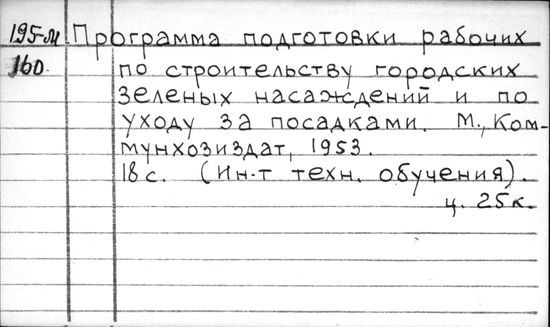 195-М Программа подготовки рабочих
160 по строительству городских
зеленых насаждений и по
уходу за посадками. М., Ком-
мунхозиздат, 1953.
18 с. (Ин-т техн. обучения).
ц. 25к.